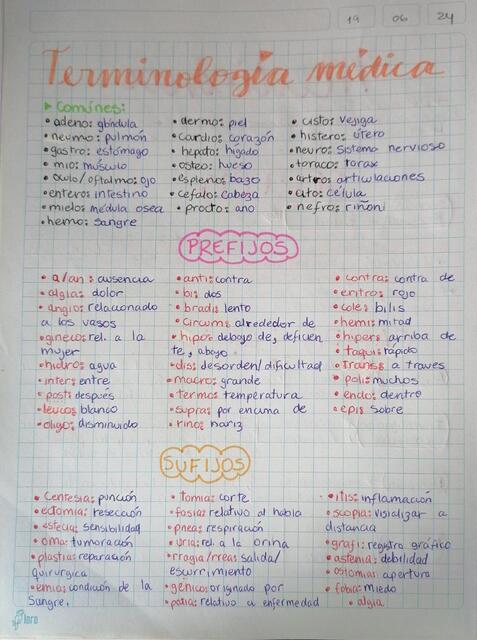 19 06 24
Terminología médica
Comúnes:
• adeno: glándula
• neumo: pulmón
• gastro: estómago
• mio: músculo
• oculo/oftalmo: ojo
• entero: intestino
• mielo: médula osea
• hemo: sangre
• dermo: piel
• cardio: corazón
• hepato: hígado
• osteo: hueso
• espleno: bazo
• cefalo: cabeza
• procto: ano
• cisto: vejiga
• histero: útero
• neuro: sistema nervioso
• toraco: torax
• artro: articulaciones
• cito: célula
• nefro: riñoni
PREFIJOS
• a/an: ausencia
• algia: dolor
• angio: relacionado
a los vasos
• gineco: rel. a la
mujer
• hidro: agua
• inter: entre
• post: después
• leuco: blanco
• oligo: disminuido
• anti: contra
• bi: dos
• bradi: lento
• circum: alrededor de
• hipo: debajo de, deficien
te, abajo
• dis: desorden/dificultad
• macro: grande
• termo: temperatura
• supra: por encima de
• rino: nariz
• contra: contra de
• eritro: rojo
• cole: bilis
• hemi: mitad
• hiper: arriba de
• taqui: rápido
• Trans: a través
• poli: muchos
• endo: dentro
• epi: sobre
SUFIJOS
• Centesia: punción
• ectomia: resección
• estecia: sensibilidad
• oma: tumoración
• plastia: reparación
quirurgica
• emia: condición de la
sangre.
• tomia: corte
• fasia: relativo al habla
• pnea: respiración
• uria: rel. a la orina
• rragia/rrea: salida/
escurrimiento
• génico: originado por
• patia: relativo a enfermedad
• itis: inflamación
• scopia: visializar a
distancia
• grafi: registro gráfico
• astenia: debilidad
• ostomia: apertura
• fobia: miedo
• algia
loro